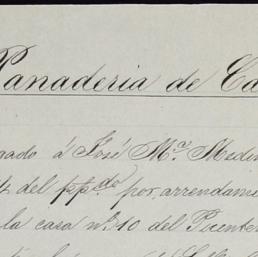 Panaderia de Ca
gado á José Mª Medin
del ppdo por arrendami
la casa nº 10 del Puente